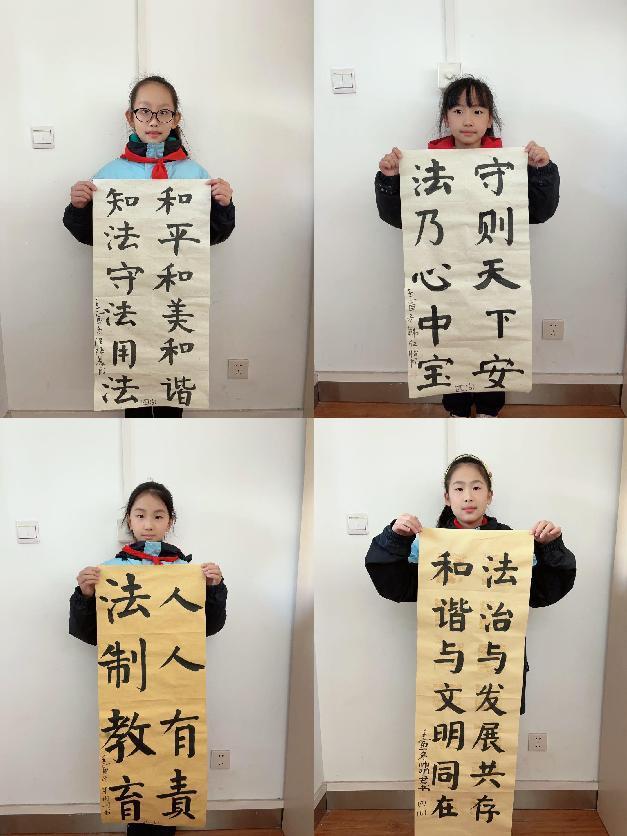 和平和美和谐
知法守法用法
守则天下安
法乃心中宝
人人有責
法制教育
法治与发展共存
和谐与文明同在